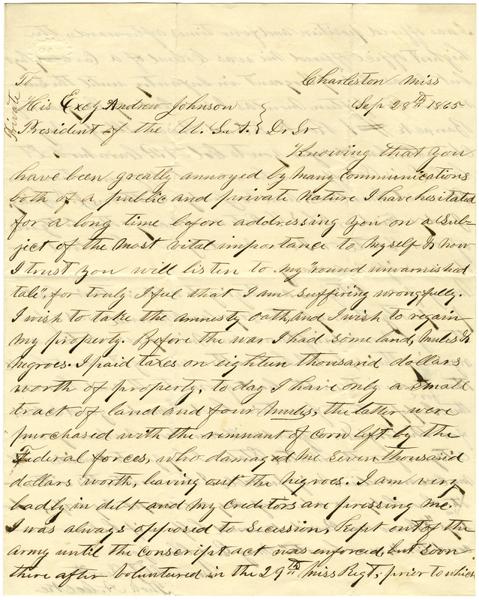 Private
Charleston Miss
To
His Excy Andrew Johnson } Sep 28th 1865
President of the U.S.A } Dr Sr
Knowing that you
have been greatly annoyed by many communications
both of a public and private nature I have hesitated
for a long time before addressing you on a sub-
ject of the most vital importance to myself & now
I trust you will listen to my "round unvarnished
tale", for truly I feel that I am suffering wrongfully.
I wish to take the amnesty oath, and I wish to regain
my property. Before the war I had some land, mules &
negroes. I paid taxes on eighteen thousand dollars
worth of property, to day I have only a small
tract of land and four mules, the latter were
purchased with the remnant of corn left by the
Federal forces, who damaged me seven thousand
dollars worth, leaving out the negroes. I am very
badly in debt and my creditors are pressing me.
I was always opposed to secession, kept out of the
army until the conscript act was enforced, but soon
there after volunteered in the 29th Miss Regt, prior to which